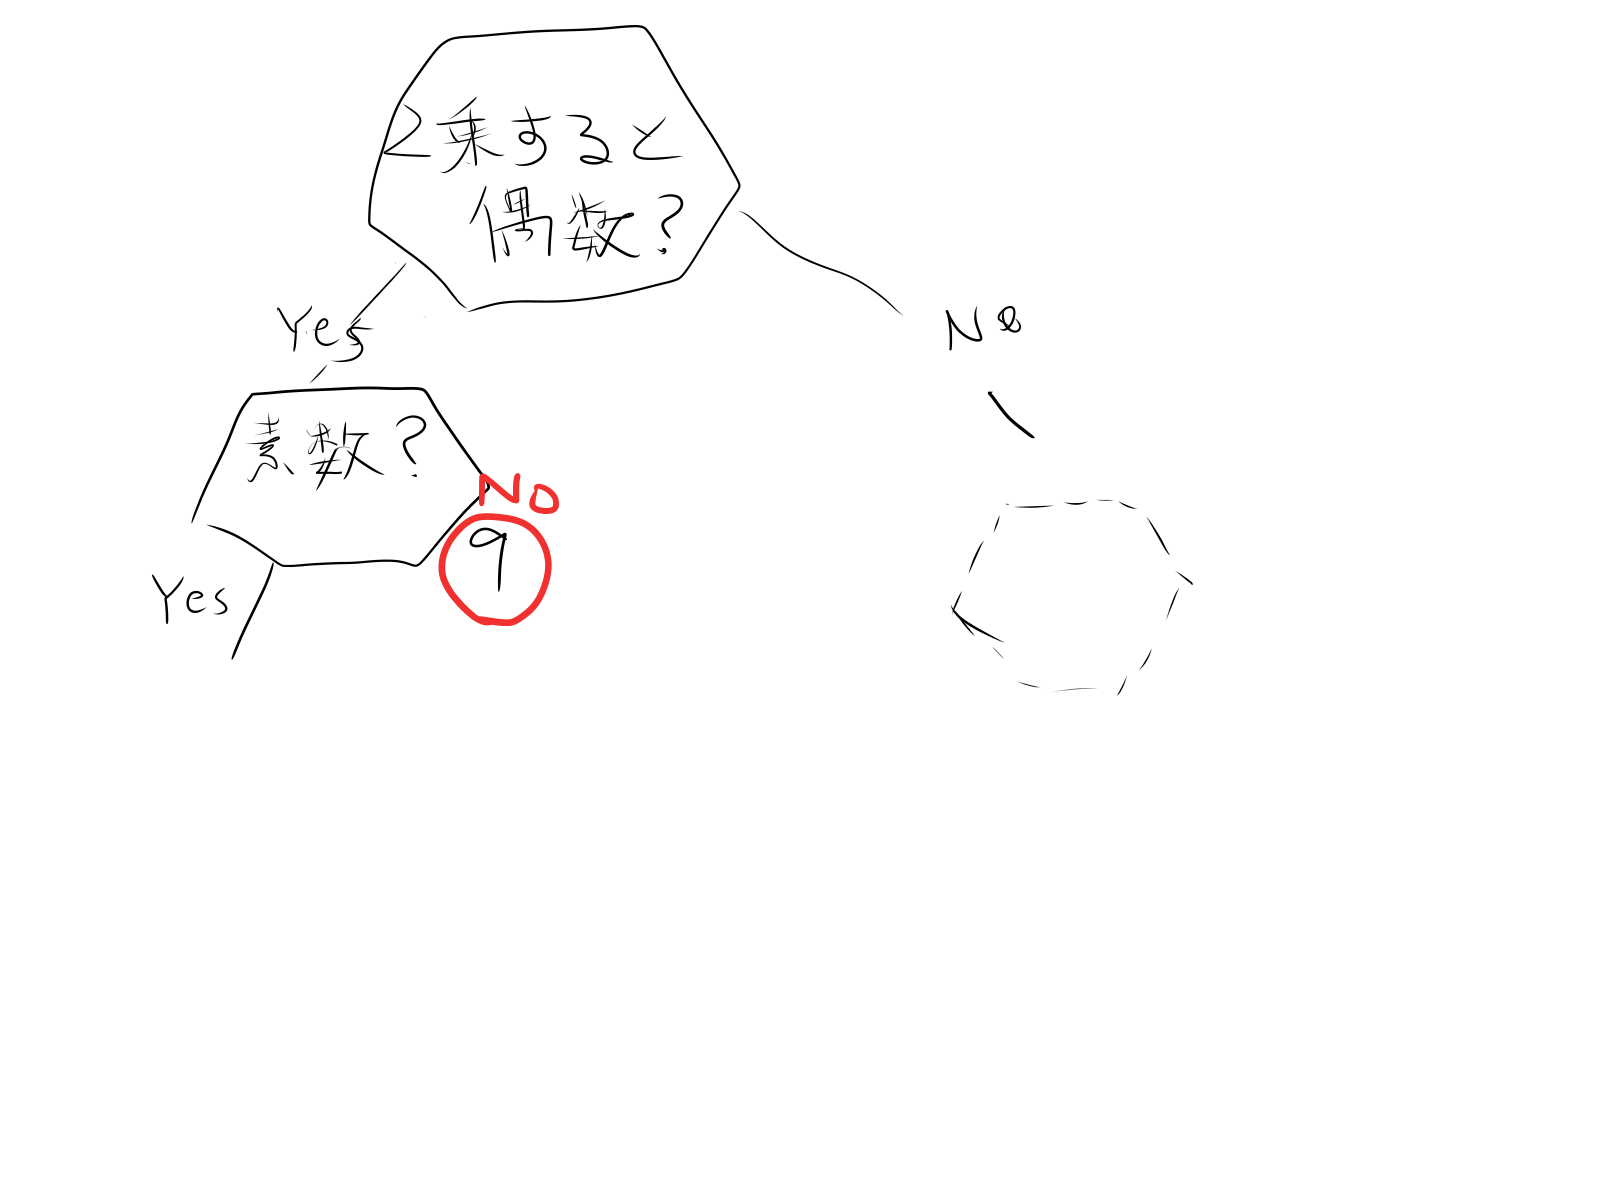 2乗すると
偶数?
Yes
No
素数?
No
9
Yes